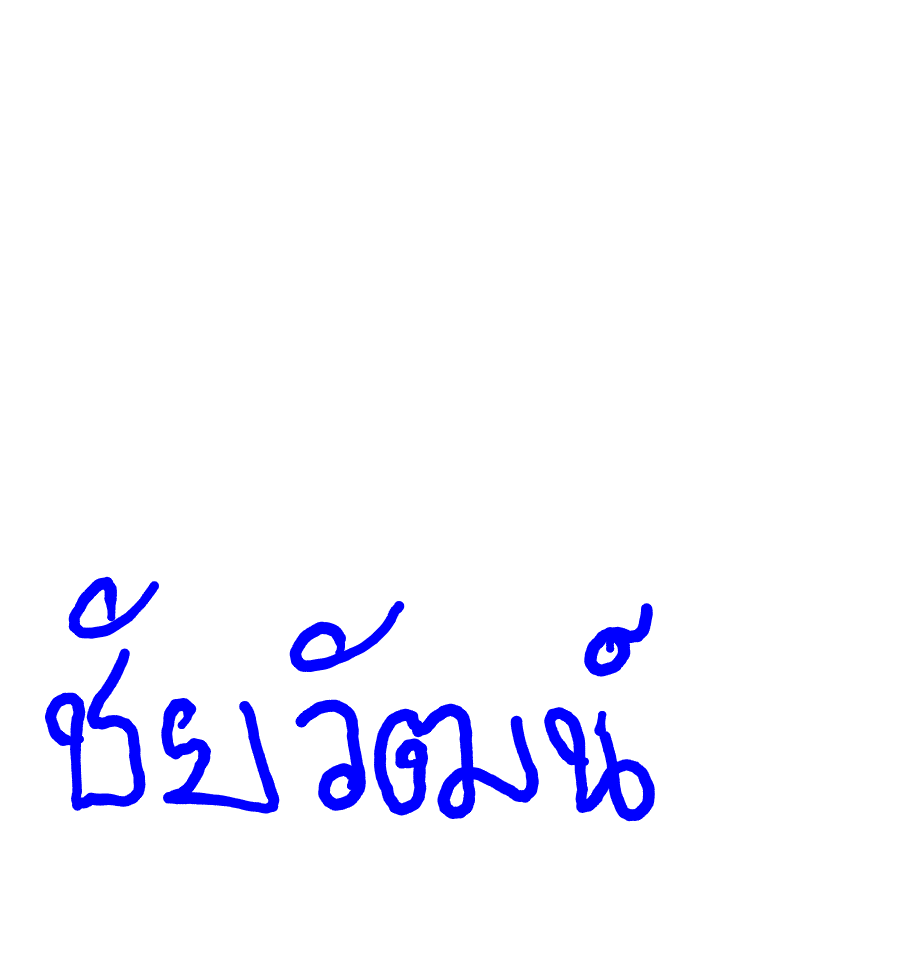 ชัยวัฒน์